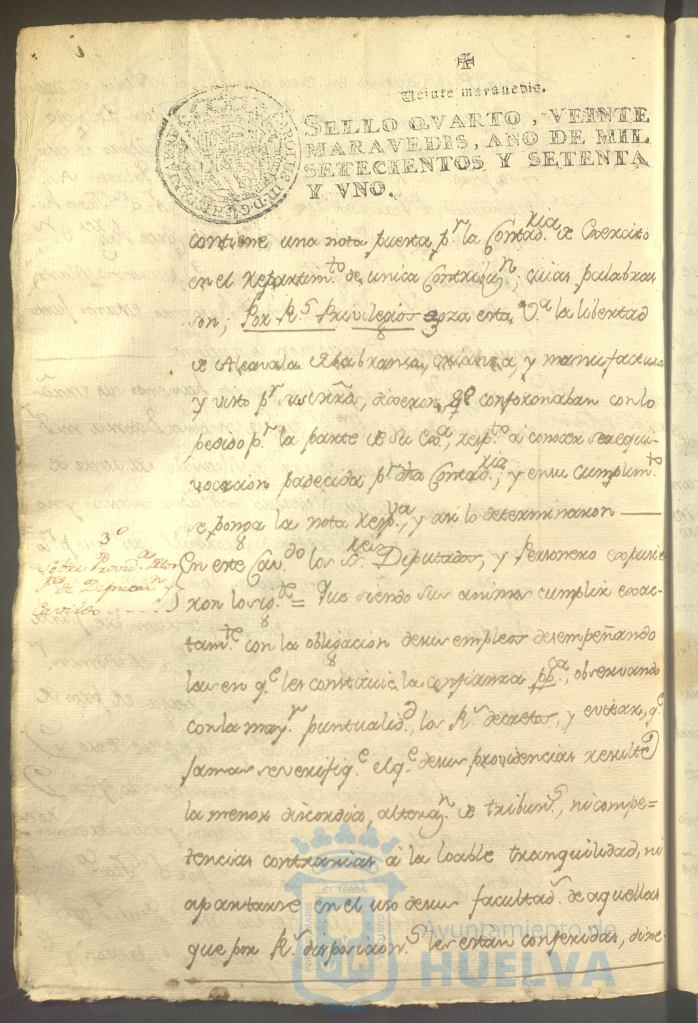 Veinte maravedis.
SELLO QVARTO, VEINTE
MARAVEDIS, AÑO DE MIL
SETECIENTOS Y SETENTA
Y VNO.
CAROLUS III D.G. HISPANIAR REX
contiene una nota puesta pr. la Contadria de Exercito
en el repartimto. de unica Contribuon., cuias palabras
son; Por Rs. Privilegios goza esta Va. la libertad
de Alcavala labranza, crianza, y manufactura
y visto pr. sus mrds, dixeron, qe conformaban con lo
pedido pr. la parte de su Exa., respto. a constar
vocacion padecida pr. dha Contadria, y en su cumplimto.
se ponga la nota respva., y asi lo determinaron
3o
sobre Provida.
de Diputaon y
Cavildo
En este Cavdo los Sres. Diputados, y Personero expusie
ron lo sigte. = Que siendo sus animos cumplir exac-
tamte. con la obligacion de sus empleos desempeñando
las en qe. les constituie la confianza ppca., observando
con la mayr. puntualidd., los Rs. decretos, y evitar, qe.
jamas se verifiqe. el qe. de sus providencias resulte
la menor discordia, alteran. de tribuns., ni compe=
tencias contrarias á la loable tranquilidad, ni
apartarse en el uso de sus facultads. de aquellas
que por Rs. disposicions. les estan conferidas, dixe-
Ayuntamiento de
HUELVA